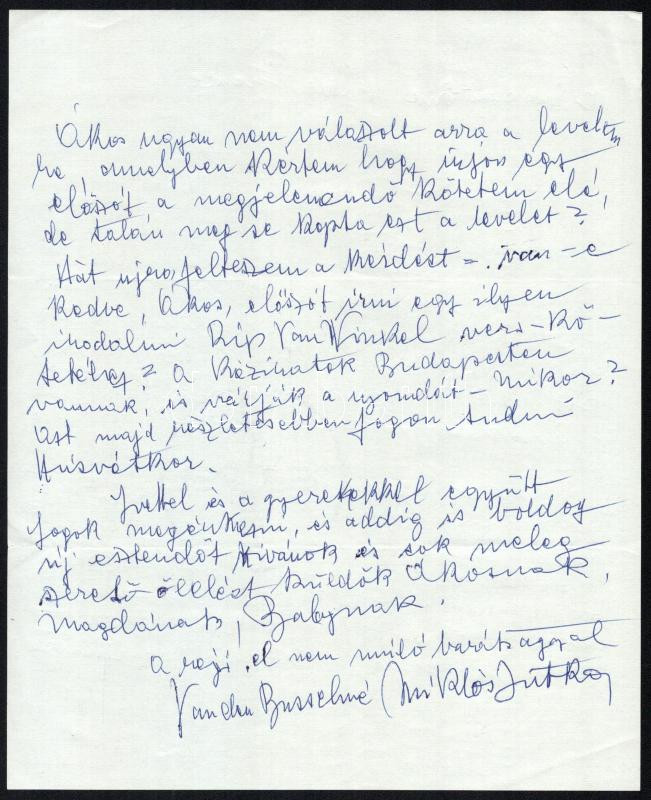 Ákos ugyan nem válaszolt arra a levelem
re, amelyben kértem hogy írjon egy
előszót a megjelenendő kötetem elé,
de talán meg se kapta ezt a levelet?
Hát ujra felteszem a kérdést – van-e
kedve, Ákos, előszót írni egy ilyen
irodalmi Rip Van Winkel vers-kö-
tetéhez? A kéziratok Budapesten
vannak, és várják a nyomdát – mikor?
Azt majd részletesebben fogom tudni
Húsvétkor.
Ivettel és a gyerekekkel együtt
fogok megérkezni, és addig is boldog
új esztendőt kívánok és sok meleg
szerető ölelést küldök Ákosnak,
Magdának, Babynak.
a régi, el nem múló barátsággal
Vanden Busschné (Miklós Jutka)